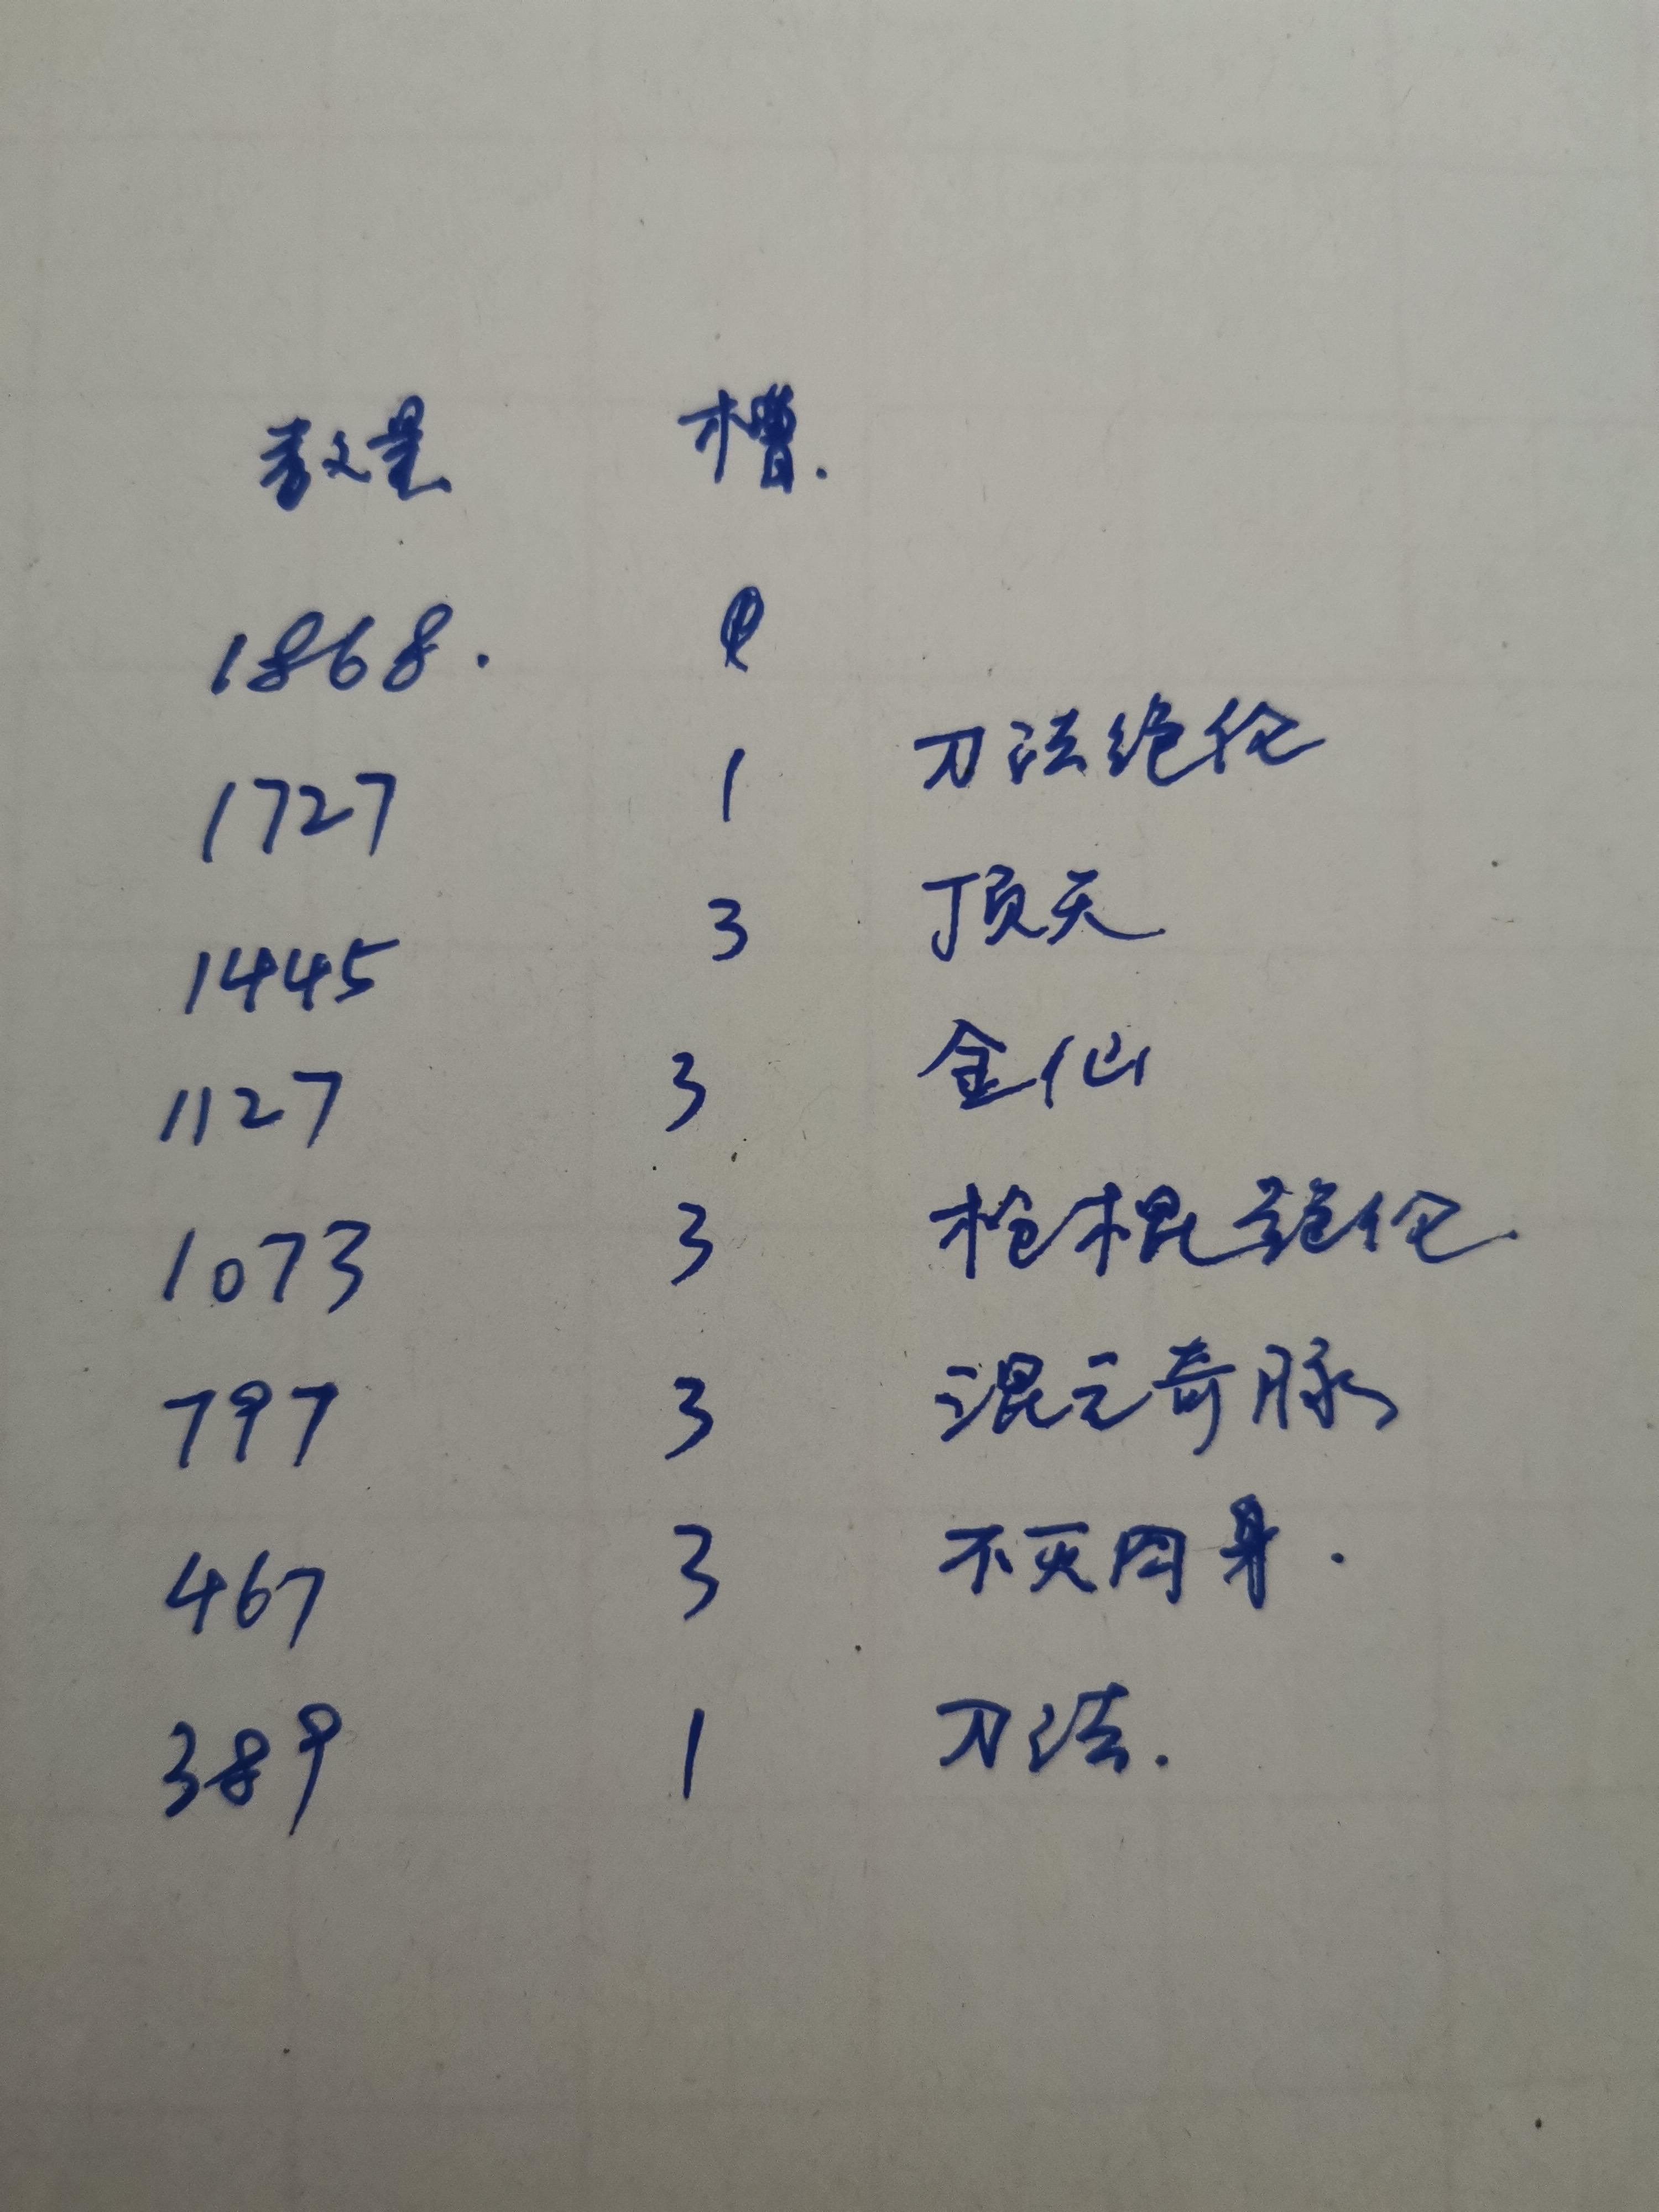 数量 槽.
1868.
1727 1 刀法绝伦
1445 3 顶天
1127 3 金仙
1073 3 枪棍绝伦.
797 3 混元奇脉
467 3 不灭肉身.
389 1 刀法.